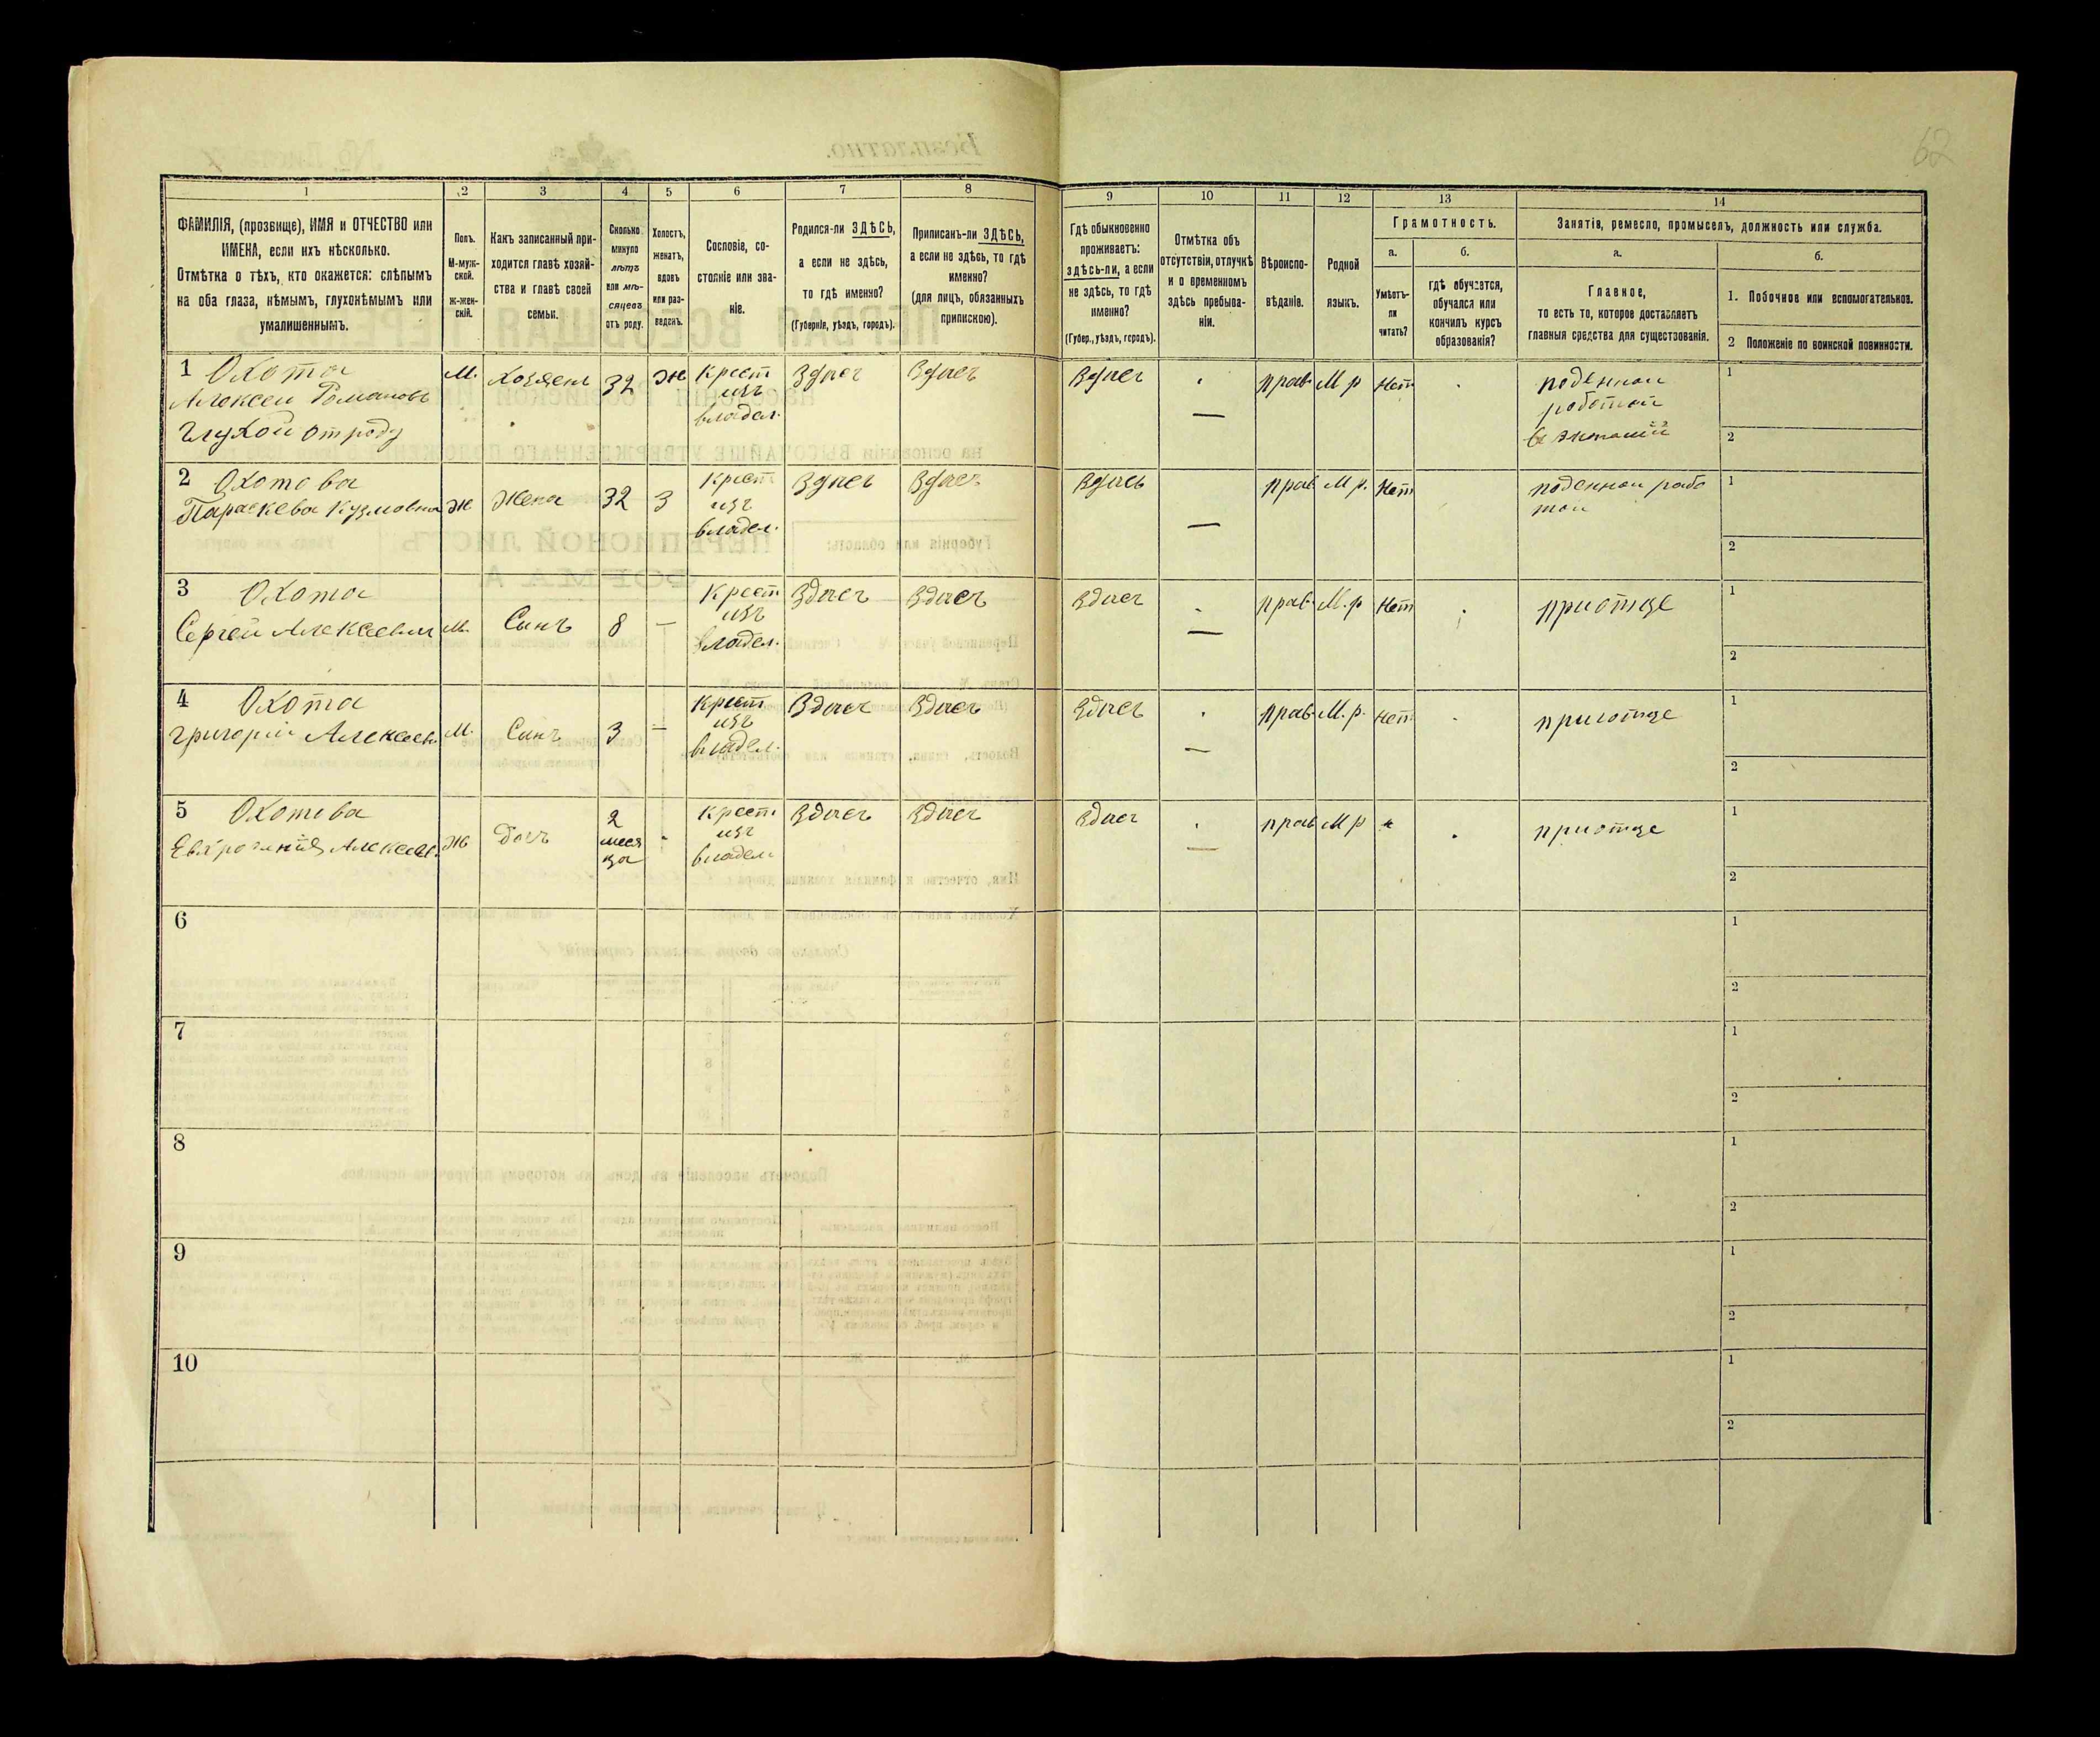 62
1
2
3
4
5
6
7
8
9
10
11
12
13
14
ФАМИЛІЯ, (прозвище), ИМЯ и ОТЧЕСТВО или
ИМЕНА, если ихъ нѣсколько.
Отмѣтка о тѣхъ, кто окажется: слѣпымъ
на оба глаза, нѣмымъ, глухонѣмымъ или
умалишеннымъ.
Полъ.
М-муж-
ской.
Ж-жен-
скій.
Какъ записанный при-
ходится главѣ хозяй-
ства и главѣ своей
семьи.
Сколько
минуло
лѣтъ
или мѣ-
сяцевъ
отъ роду.
Холостъ,
женатъ,
вдовъ
или раз-
веденъ.
Сословіе, со-
стояніе или зва-
ніе.
Родился-ли ЗДѢСЬ,
а если не здѣсь,
то гдѣ именно?
(Губернія, уѣздъ, городъ).
Приписанъ-ли ЗДѢСЬ,
а если не здѣсь, то гдѣ
именно?
(для лицъ, обязанныхъ
припискою).
Гдѣ обыкновенно
проживаетъ:
здѣсь-ли, а если
не здѣсь, то гдѣ
именно?
(Губер., уѣздъ, городъ).
Отмѣтка объ
отсутствіи, отлучкѣ
и о временномъ
здѣсь пребыва-
ніи.
Вѣроиспо-
вѣданіе.
Родной
языкъ.
Грамотность.
а.
Умѣетъ-
ли
читать?
б.
гдѣ обучается,
обучался или
кончилъ курсъ
образованія?
Занятія, ремесло, промыселъ, должность или служба.
а.
Главное,
то есть то, которое доставляетъ
главныя средства для существованія.
б.
1. Побочное или вспомогательное.
2 Положеніе по воинской повинности.
1 Охота
Алексей Романовъ
глухой отроду
М.
Хозяенъ
32
Ж
Крест
изъ
владел.
Здысь
Здысь
Здысь
прав.
М р
Нет
поденной
работой
в экономій
1
2
2 Охотова
Параскева Кузмовна
Ж
Жена
32
З
Крест
изъ
владел.
Здысь
Здысь
Здысь
прав
М р.
Нет
поденной рабо
той
1
2
3 Охота
Сергей Алексеевич
М.
Сынъ
8
—
Крест
изъ
владел.
Здысь
Здысь
Здысь
прав.
М. р
Нет
приотце
1
2
4 Охота
Григорій Алексеев.
М.
Сынъ
3
—
Крест
изъ
владел.
Здысь
Здысь
Здысь
прав.
М. р.
Нет
приотце
1
2
5 Охотова
Алексеев.
Ж
Дочъ
2
меся
ца
Крест
изъ
владел.
Здысь
Здысь
Здысь
прав
М р
приотце
1
2
6
1
2
7
1
2
8
1
2
9
1
2
10
1
2